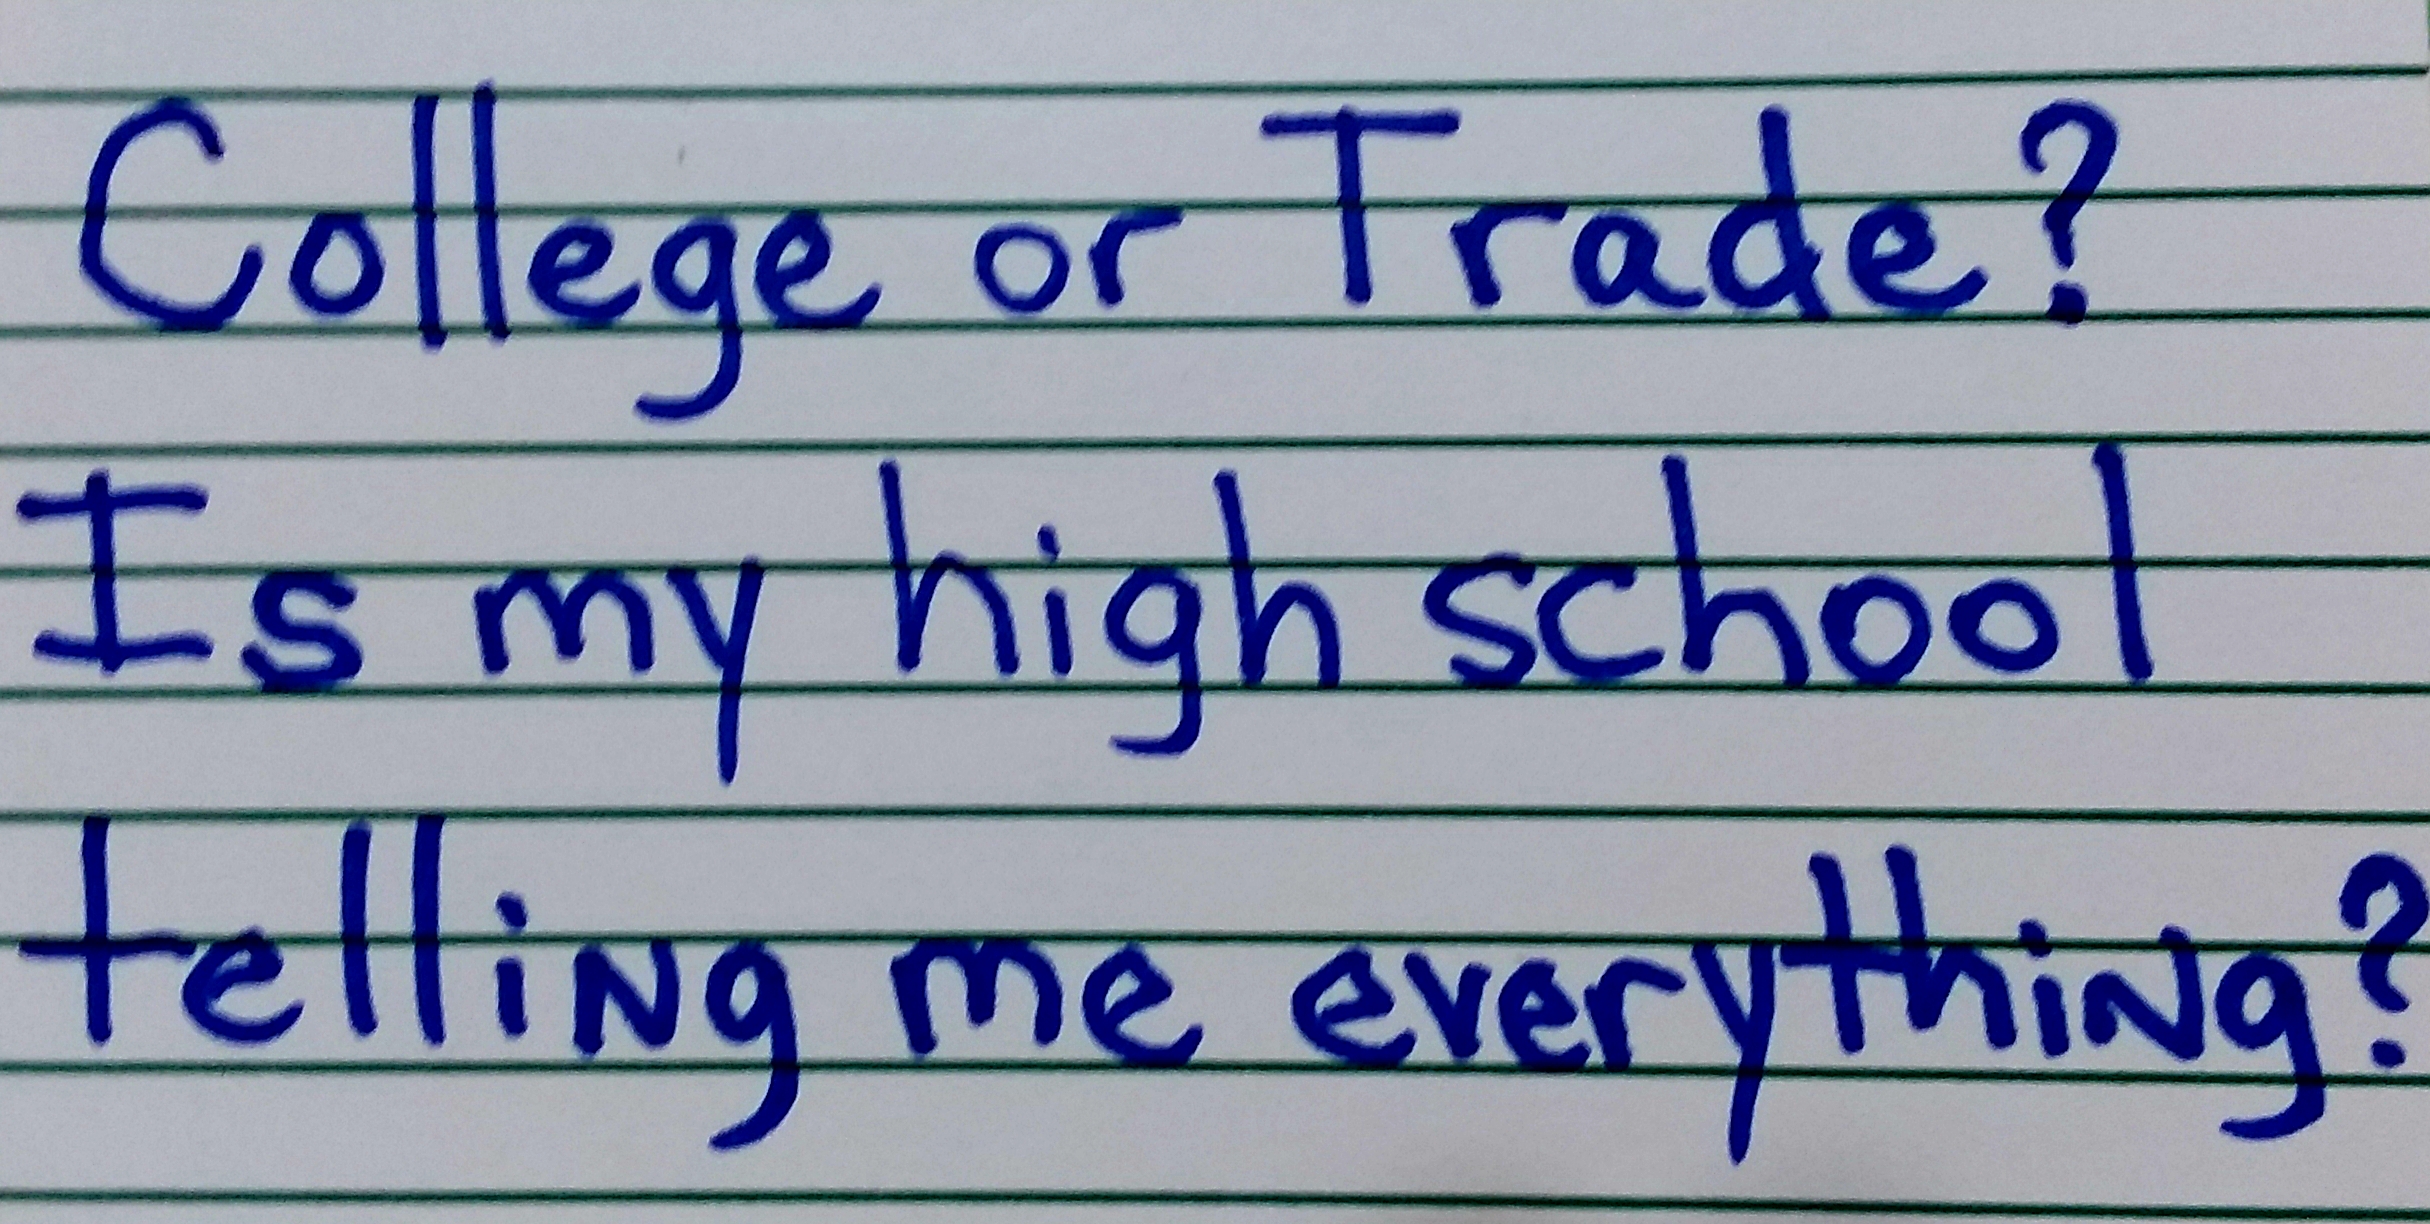 College or Trade?
Is my high school
telling me everything?